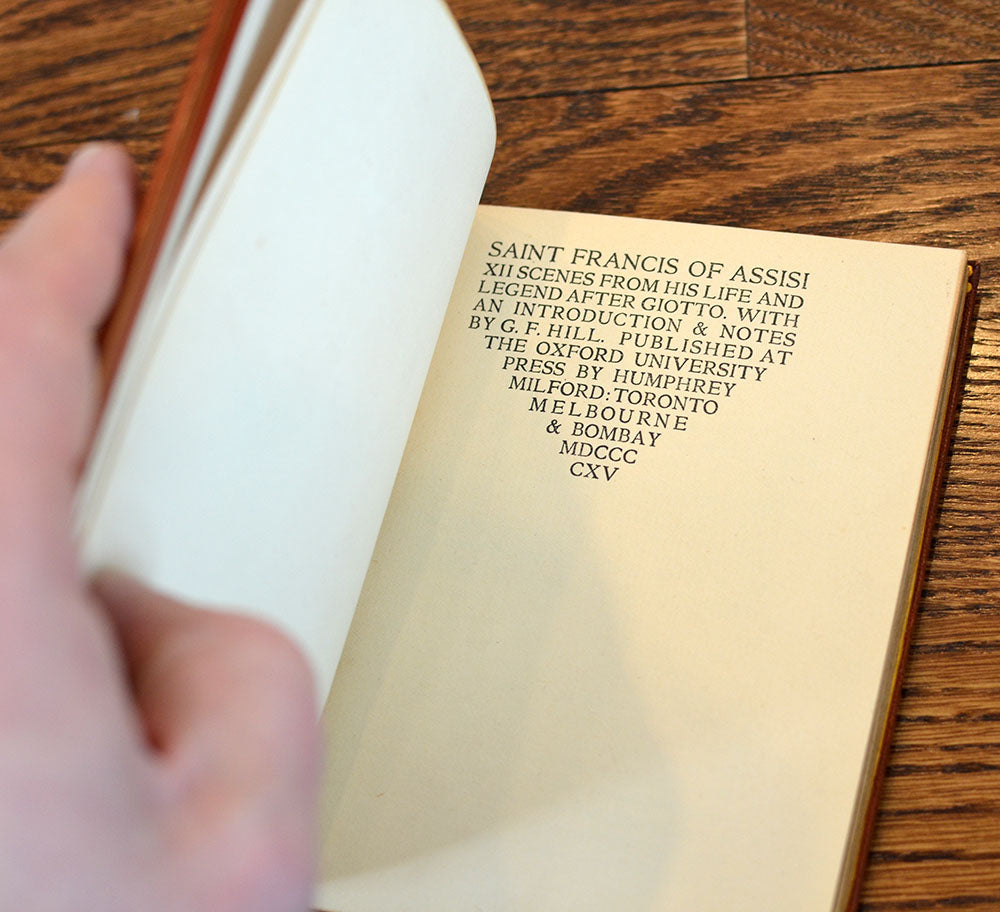 SAINT FRANCIS OF ASSISI
XII SCENES FROM HIS LIFE AND
LEGEND AFTER GIOTTO. WITH
AN INTRODUCTION & NOTES
BY G. F. HILL. PUBLISHED AT
THE OXFORD UNIVERSITY
PRESS BY HUMPHREY
MILFORD: TORONTO
MELBOURNE
& BOMBAY
MDCCC
CXV